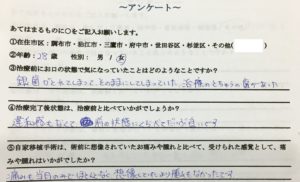 ～アンケート～
あてはまるものに○をご記入お願いします。
①在住市区：調布市・狛江市・三鷹市・府中市・世田谷区・杉並区・その他(
②年齢：28歳 男 / 女
③治療前にお口の状態で気になっていたことはどのようなことですか？
銀歯がとれてしまって、そのままにしてしまっていた、治療のとちゅうの歯があった
④治療完了後状態は、治療前と比べていかがでしょうか？
違和感もなくて 前の状態にくらべてだいぶ良いです
⑤自家移植手術は、術前に想像されていたお痛みや腫れと比べて、受けられた感覚として、痛
みや腫れはいかがでしたか？
痛みも当日のみでほとんどなく想像していたより腫れもなかったです